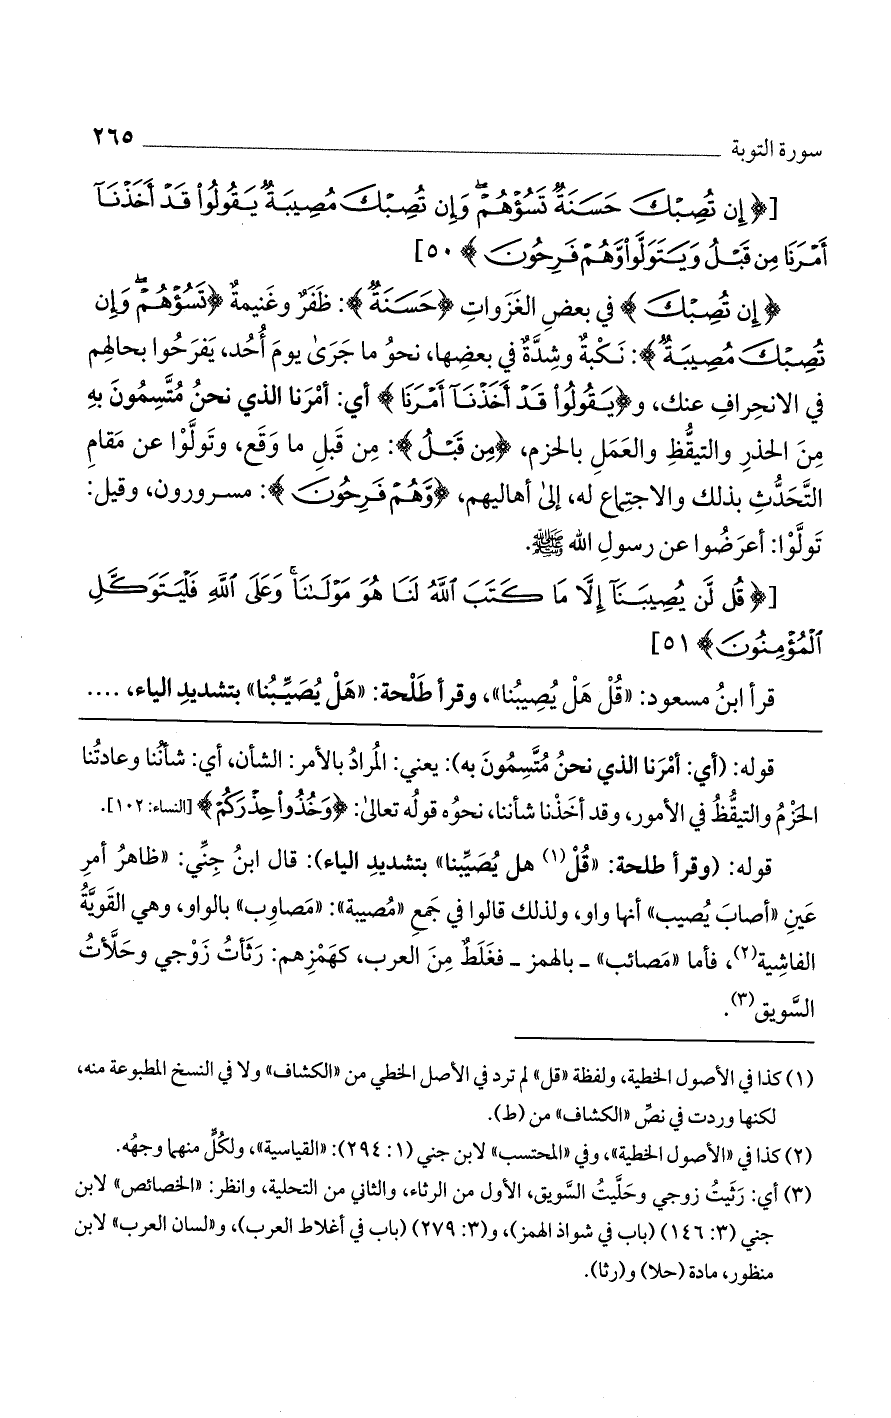 سورة التوبة ٢٦٥
[﴿إِن تُصِبْكَ حَسَنَةٌ تَسُؤْهُمْ ۖ وَإِن تُصِبْكَ مُصِيبَةٌ يَقُولُوا۟ قَدْ أَخَذْنَآ
أَمْرَنَا مِن قَبْلُ وَيَتَوَلَّوا۟ وَّهُمْ فَرِحُونَ﴾ ٥٠]
﴿إِن تُصِبْكَ﴾ في بعضِ الغَزَواتِ ﴿حَسَنَةٌ﴾: ظَفَرٌ وغَنيمةٌ ﴿تَسُؤْهُمْ ۖ وَإِن
تُصِبْكَ مُصِيبَةٌ﴾: نَكْبةٌ وشِدَّةٌ في بعضِها، نحوُ ما جَرَىٰ يومَ أُحُد، يَفرَحُوا بحالِهم
في الانحِرافِ عنك، و﴿يَقُولُوا۟ قَدْ أَخَذْنَآ أَمْرَنَا﴾ أي: أمْرَنا الذي نحنُ مُتَّسِمُونَ بهِ
مِنَ الحذرِ والتيقُّظِ والعَمَلِ بالحزم، ﴿مِن قَبْلُ﴾: مِن قَبلِ ما وَقَع، وتَولَّوْا عن مَقامِ
التَّحَدُّثِ بذلك والاجتِماعِ له، إلىٰ أهاليهم، ﴿وَّهُمْ فَرِحُونَ﴾: مسرورون، وقيل:
تَولَّوْا: أعرَضُوا عن رسولِ الله ﷺ.
[﴿قُل لَّن يُصِيبَنَآ إِلَّا مَا كَتَبَ ٱللَّهُ لَنَا هُوَ مَوْلَىٰنَا ۚ وَعَلَى ٱللَّهِ فَلْيَتَوَكَّلِ
ٱلْمُؤْمِنُونَ﴾ ٥١]
قرأ ابنُ مسعود: «قُلْ هَلْ يُصِيبُنا»، وقرأ طَلْحة: «هَلْ يُصَيِّبُنا» بتشديدِ الياء، ....
قوله: (أي: أمْرَنا الذي نحنُ مُتَّسِمُونَ به): يعني: المُرادُ بالأمر: الشأن، أي: شأنُنا وعادتُنا
الحَزْمُ والتيقُّظُ في الأمور، وقد أخَذْنا شأننا، نحوُه قولُه تعالىٰ: ﴿وَخُذُوا۟ حِذْرَكُمْ﴾ [النساء: ١٠٢].
قوله: (وقرأ طلحة: «قُلْ(١) هل يُصَيِّبنا» بتشديدِ الياء): قال ابنُ جِنِّي: «ظاهرُ أمرِ
عَينِ «أصابَ يُصيب» أنها واو، ولذلك قالوا في جَمعِ «مُصيبة»: «مَصاوِب» بالواو، وهي القَويَّةُ
الفاشِية(٢)، فأما «مَصائب» ـ بالهمز ـ فغَلَطٌ مِنَ العرب، كهَمْزِهم: رَثَأتُ زَوْجي وحَلَّأتُ
السَّويق(٣).
(١) كذا في الأصول الخطية، ولفظة «قل» لم ترد في الأصل الخطي من «الكشاف» ولا في النسخ المطبوعة منه،
لكنها وردت في نصِّ «الكشاف» من (ط).
(٢) كذا في «الأصول الخطية»، وفي «المحتسب» لابن جني (١: ٢٩٤): «القياسية»، ولكُلٍّ منهما وجهُه.
(٣) أي: رَثَيتُ زوجي وحَلَّيتُ السَّويق، الأول من الرثاء، والثاني من التحلية، وانظر: «الخصائص» لابن
جني (٣: ١٤٦) (باب في شواذ الهمز)، و(٣: ٢٧٩) (باب في أغلاط العرب)، و«لسان العرب» لابن
منظور، مادة (حلا) و(رثا).